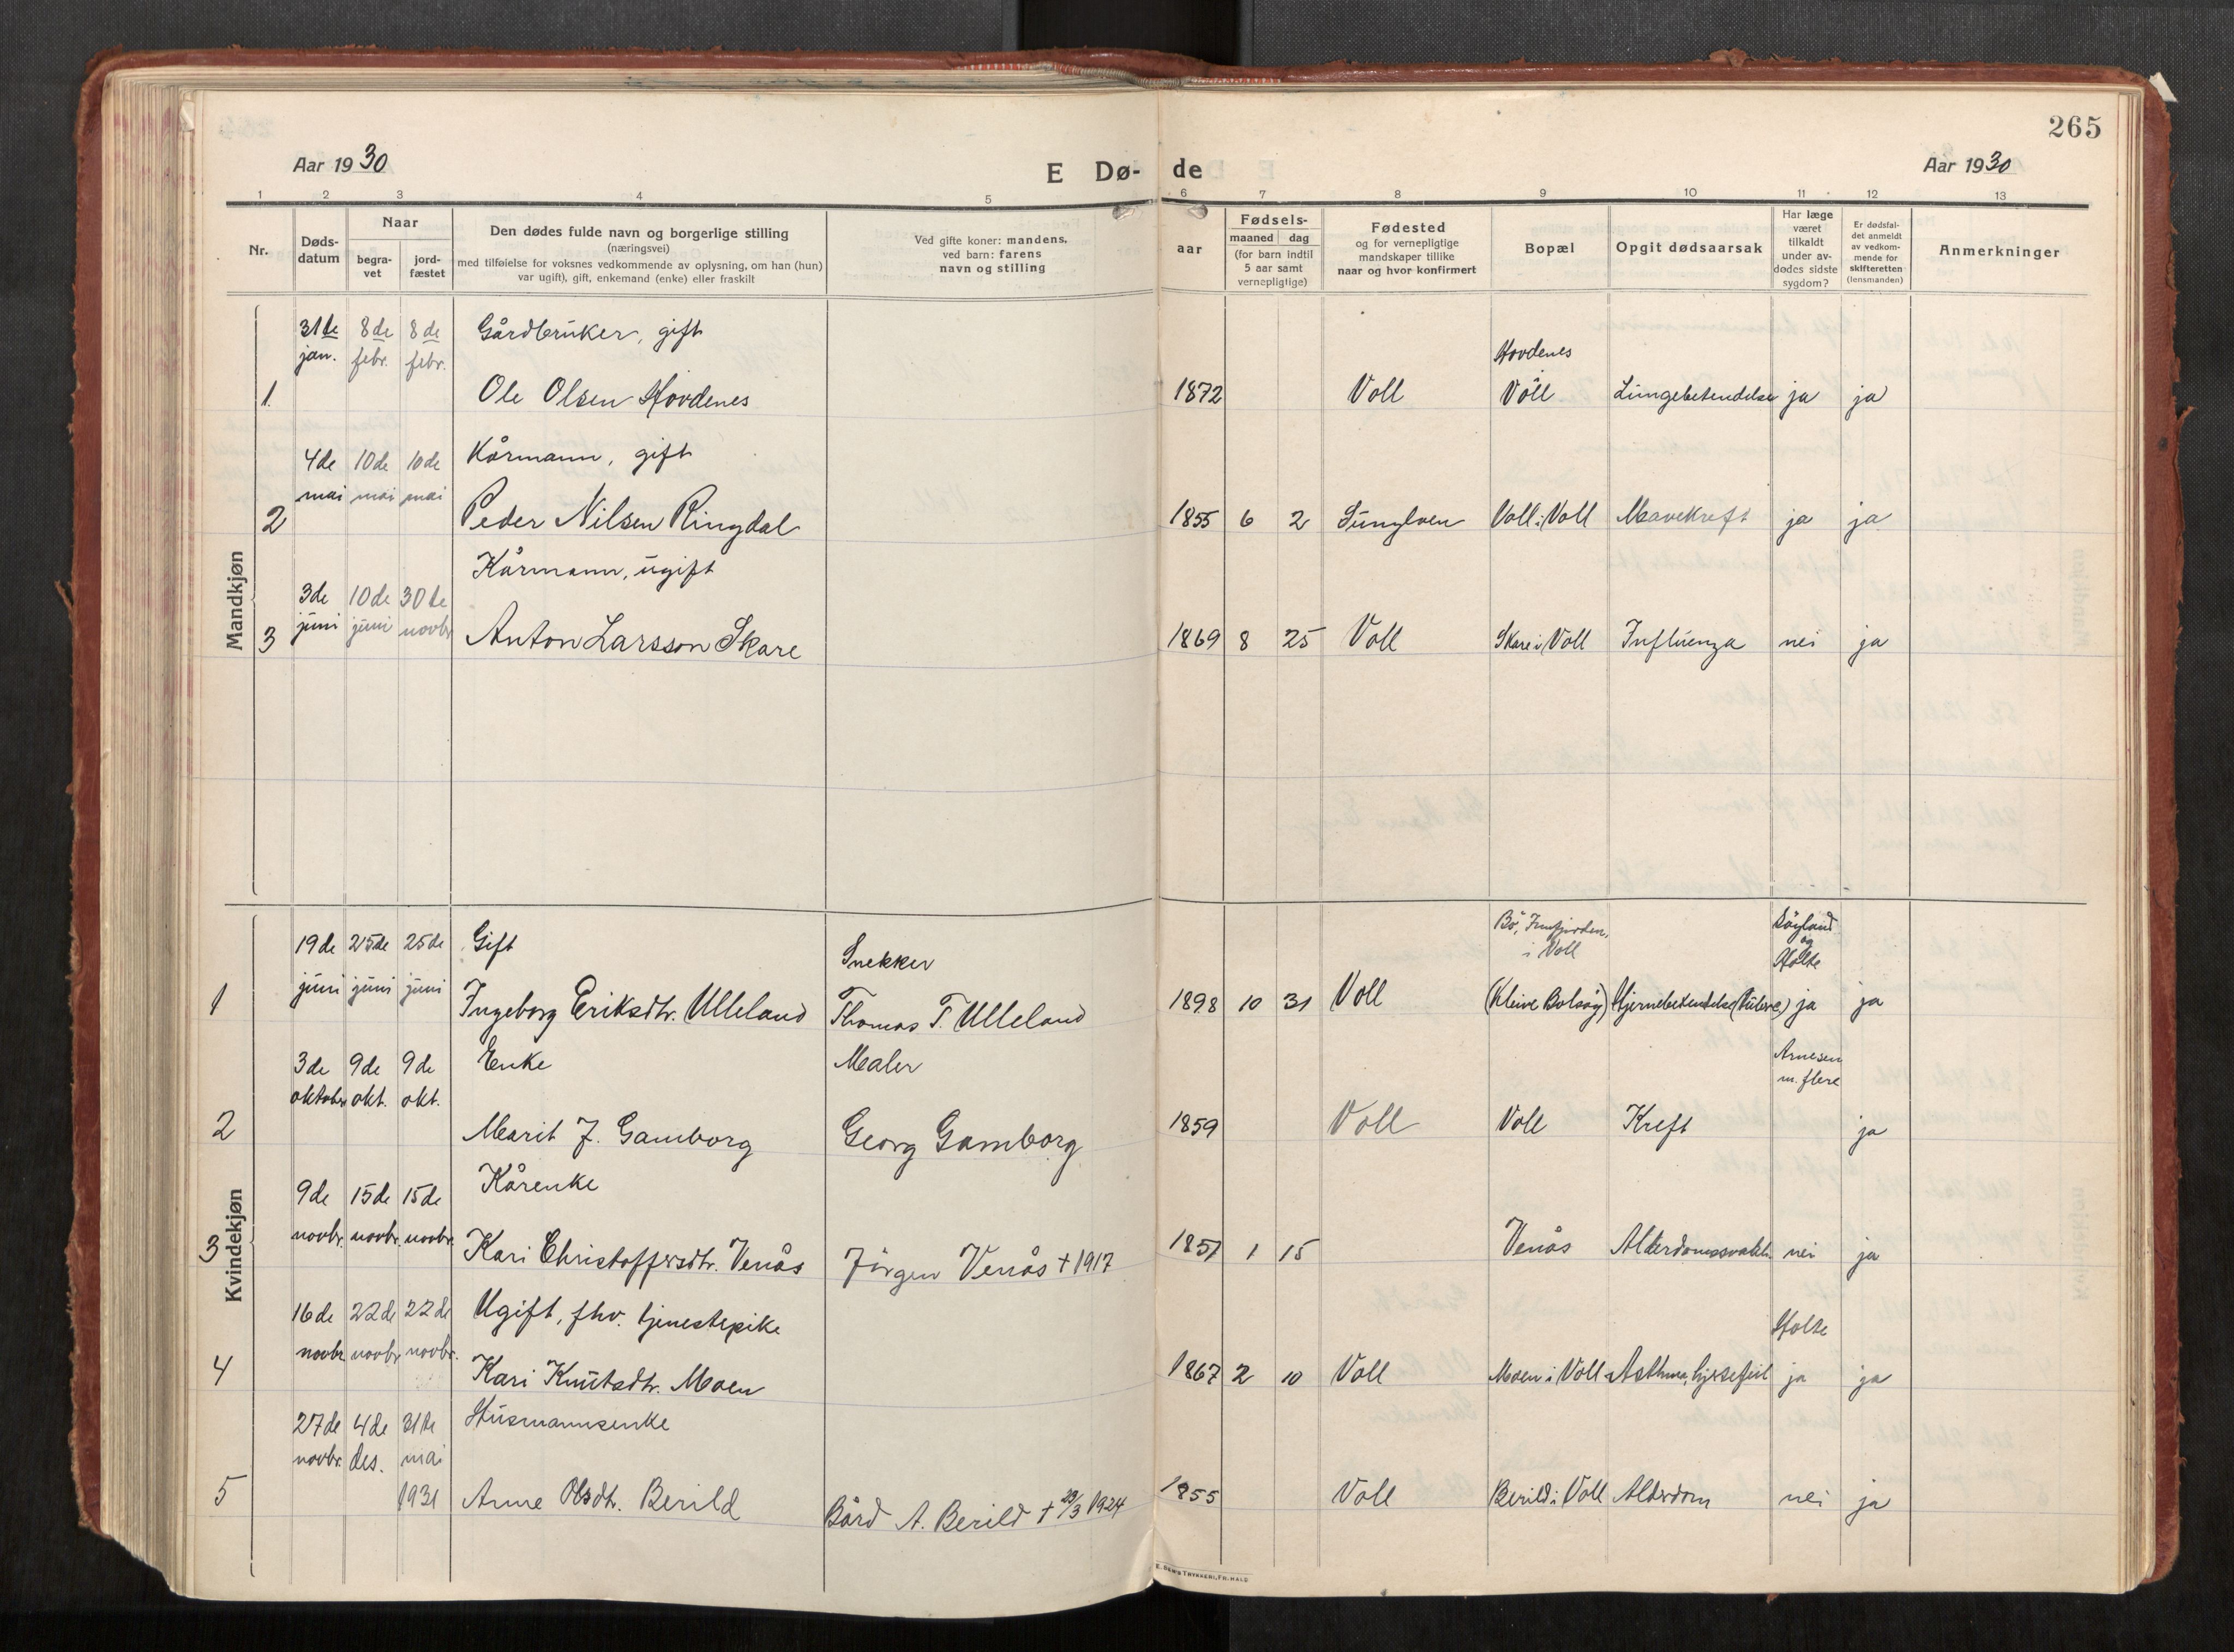 265
Aar 1930
E Dø- de
Aar 1930
1 2 3 4 5 6 7 8 9 10 11 12 13
Nr.
Døds-
datum
Naar
begra-
vet
jord-
fæstet
Den dødes fulde navn og borgerlige stilling
(næringsvei)
med tilføielse for voksnes vedkommende av oplysning, om han (hun)
var ugift), gift, enkemand (enke) eller fraskilt
Ved gifte koner: mandens,
ved barn: farens
navn og stilling
aar
Fødsels-
maaned dag
(for barn indtil
5 aar samt
vernepligtige)
Fødested
og for vernepligtige
mandskaper tillike
naar og hvor konfirmert
Bopæl
Opgit dødsaarsak
Har læge
været
tilkaldt
under av-
dødes sidste
sygdom?
Er dødsfal-
det anmeldt
av vedkom-
mende for
skifteretten
(lensmanden)
Anmerkninger
Mandkjøn
31te 8de 8de Gårdbruker, gift
jan. febr. febr. Hovdenes
1. Ole Olsen Hovdenes 1872 Voll Voll Lungebetendelse ja ja
4de 10de 10de Kårmann, gift
mai mai mai
2 Peder Nilsen Ringdal 1855 6 2 Sunylven Voll i Voll Mavekreft ja ja
Kårmann, ugift
3de 10de 30te
juni juni novbr
3 Anton Larsson Skare 1869 8 25 Voll Skare i Voll Influenza nei ja
Kvindekjøn
19de 25de 25de Gift Snekker Bø, Innfjorden, i Voll
juni juni juni og Holte
1 Ingeborg Eriksdtr. Ulleland Thomas T. Ulleland 1898 10 31 Voll (Kleive Bolsøy) Hjernebetendelse ja ja
3de 9de 9de Enke Maler Arnesen
oktober okt. okt. m. flere
2 Marit J. Gamborg Georg Gamborg 1859 Voll Voll Kreft ja
9de 15de 15de Kårenke
novbr. novbr. novbr.
3 Kari Christoffersdtr. Venås Jörgen Venås + 1917 1851 1 15 Venås nei ja
16de 22de 22de Ugift, fhv. tjenestepike Holte
novbr novbr novbr.
4 Kari Knutsdtr. Moen 1867 2 10 Voll Moen i Voll Asthma, hjertefeil ja ja
27de 4de 31te Husmannsenke
novbr. des. mai
5 1931 Anne Olsdtr. Berild Bård A. Berild + 23/3 1924 1855 Voll Berild i Voll Alderdom nei ja